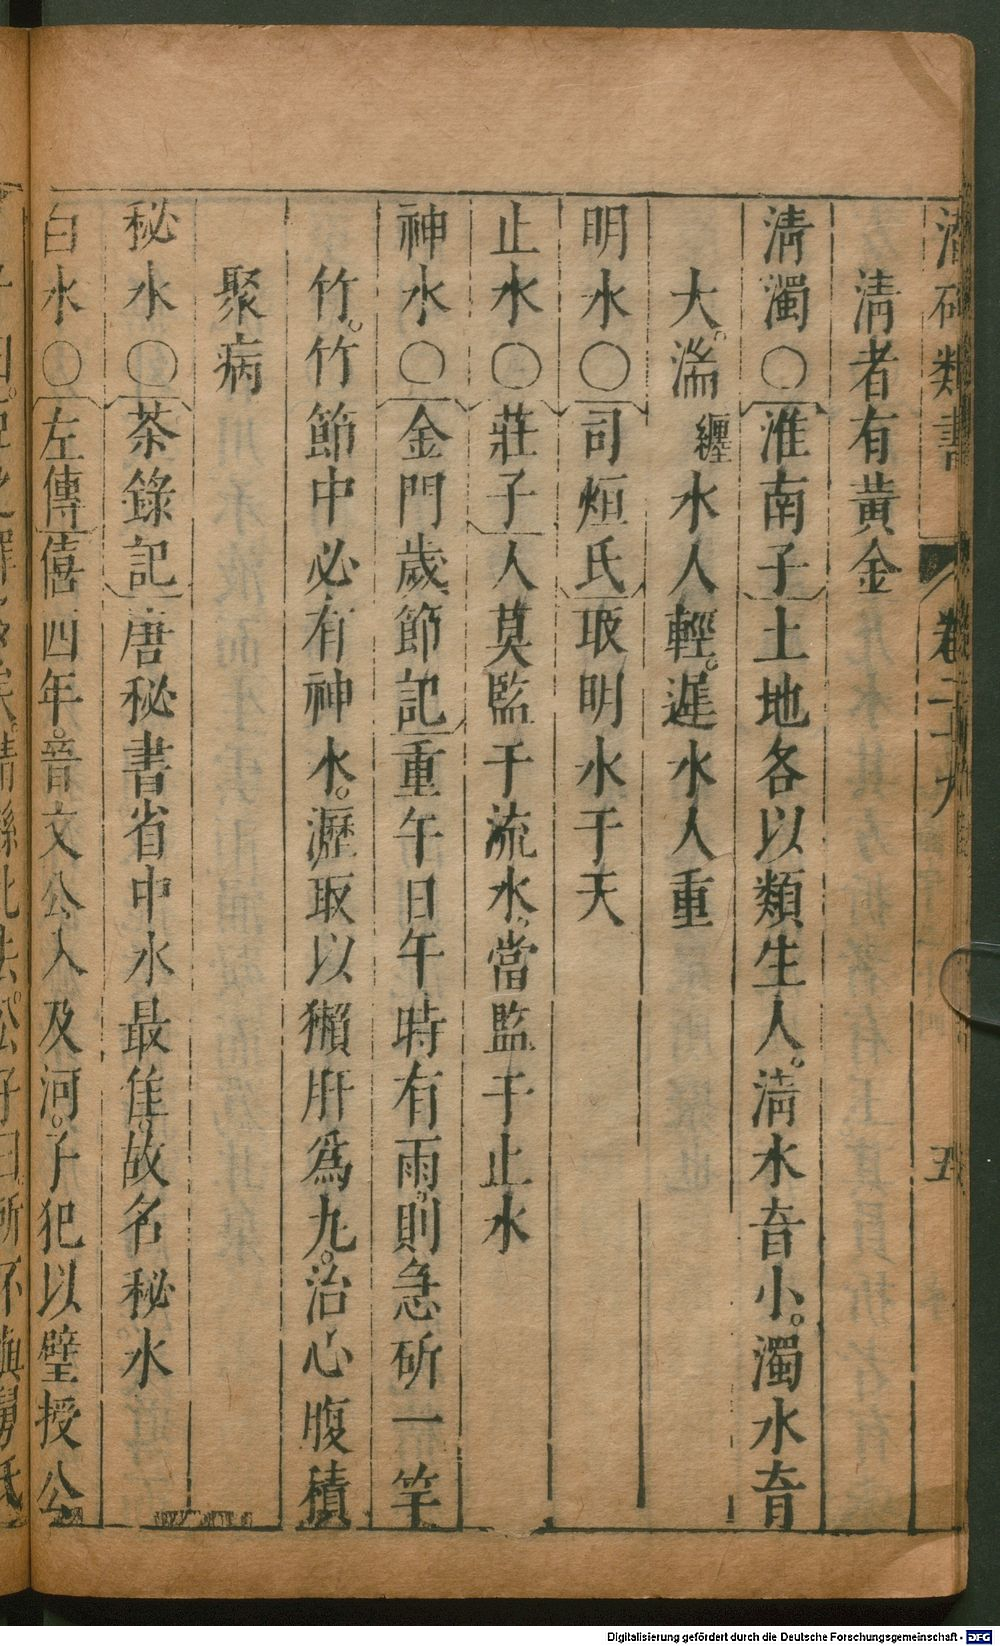 潛确類書 卷三十九 五
清者有黃金
清濁○淮南子土地各以類生人。清水音小。濁水音
大。湍纏水人輕。遲水人重
明水○司烜氏取明水于天
止水○莊子人莫監于流水。當監于止水
神水○金門歲節記重午日午時有雨。則急斫一竿
竹。竹節中必有神水。瀝取以獺肝為九。治心腹積
聚病
秘水○茶錄記唐秘書省中水最佳。故名秘水
白水○左傳僖四年。晉文公入及河。子犯以璧授公